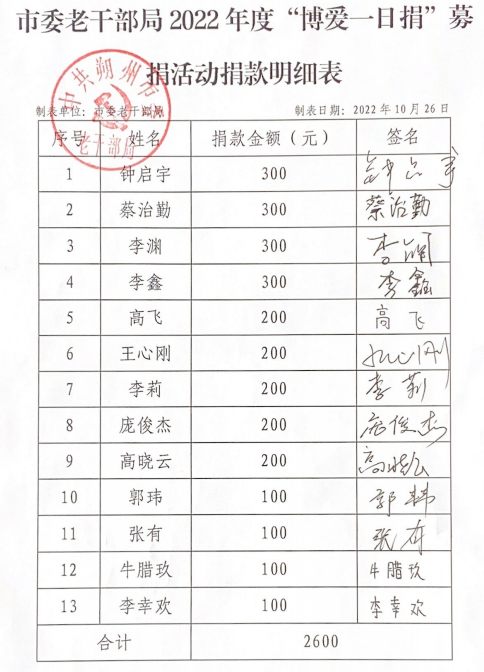 市委老干部局 2022 年度“博爱一日捐”募
捐活动捐款明细表
中共朔州市
老干部局
制表单位：市委老干部局 制表日期：2022 年 10 月 26 日
序号 姓名 捐款金额（元） 签名
1 钟启宇 300 钟启宇
2 蔡治勤 300 蔡治勤
3 李渊 300 李渊
4 李鑫 300 李鑫
5 高飞 200 高飞
6 王心刚 200 王心刚
7 李莉 200 李莉
8 庞俊杰 200 庞俊杰
9 高晓云 200 高晓云
10 郭玮 100 郭玮
11 张有 100 张有
12 牛腊玖 100 牛腊玖
13 李幸欢 100 李幸欢
合计 2600